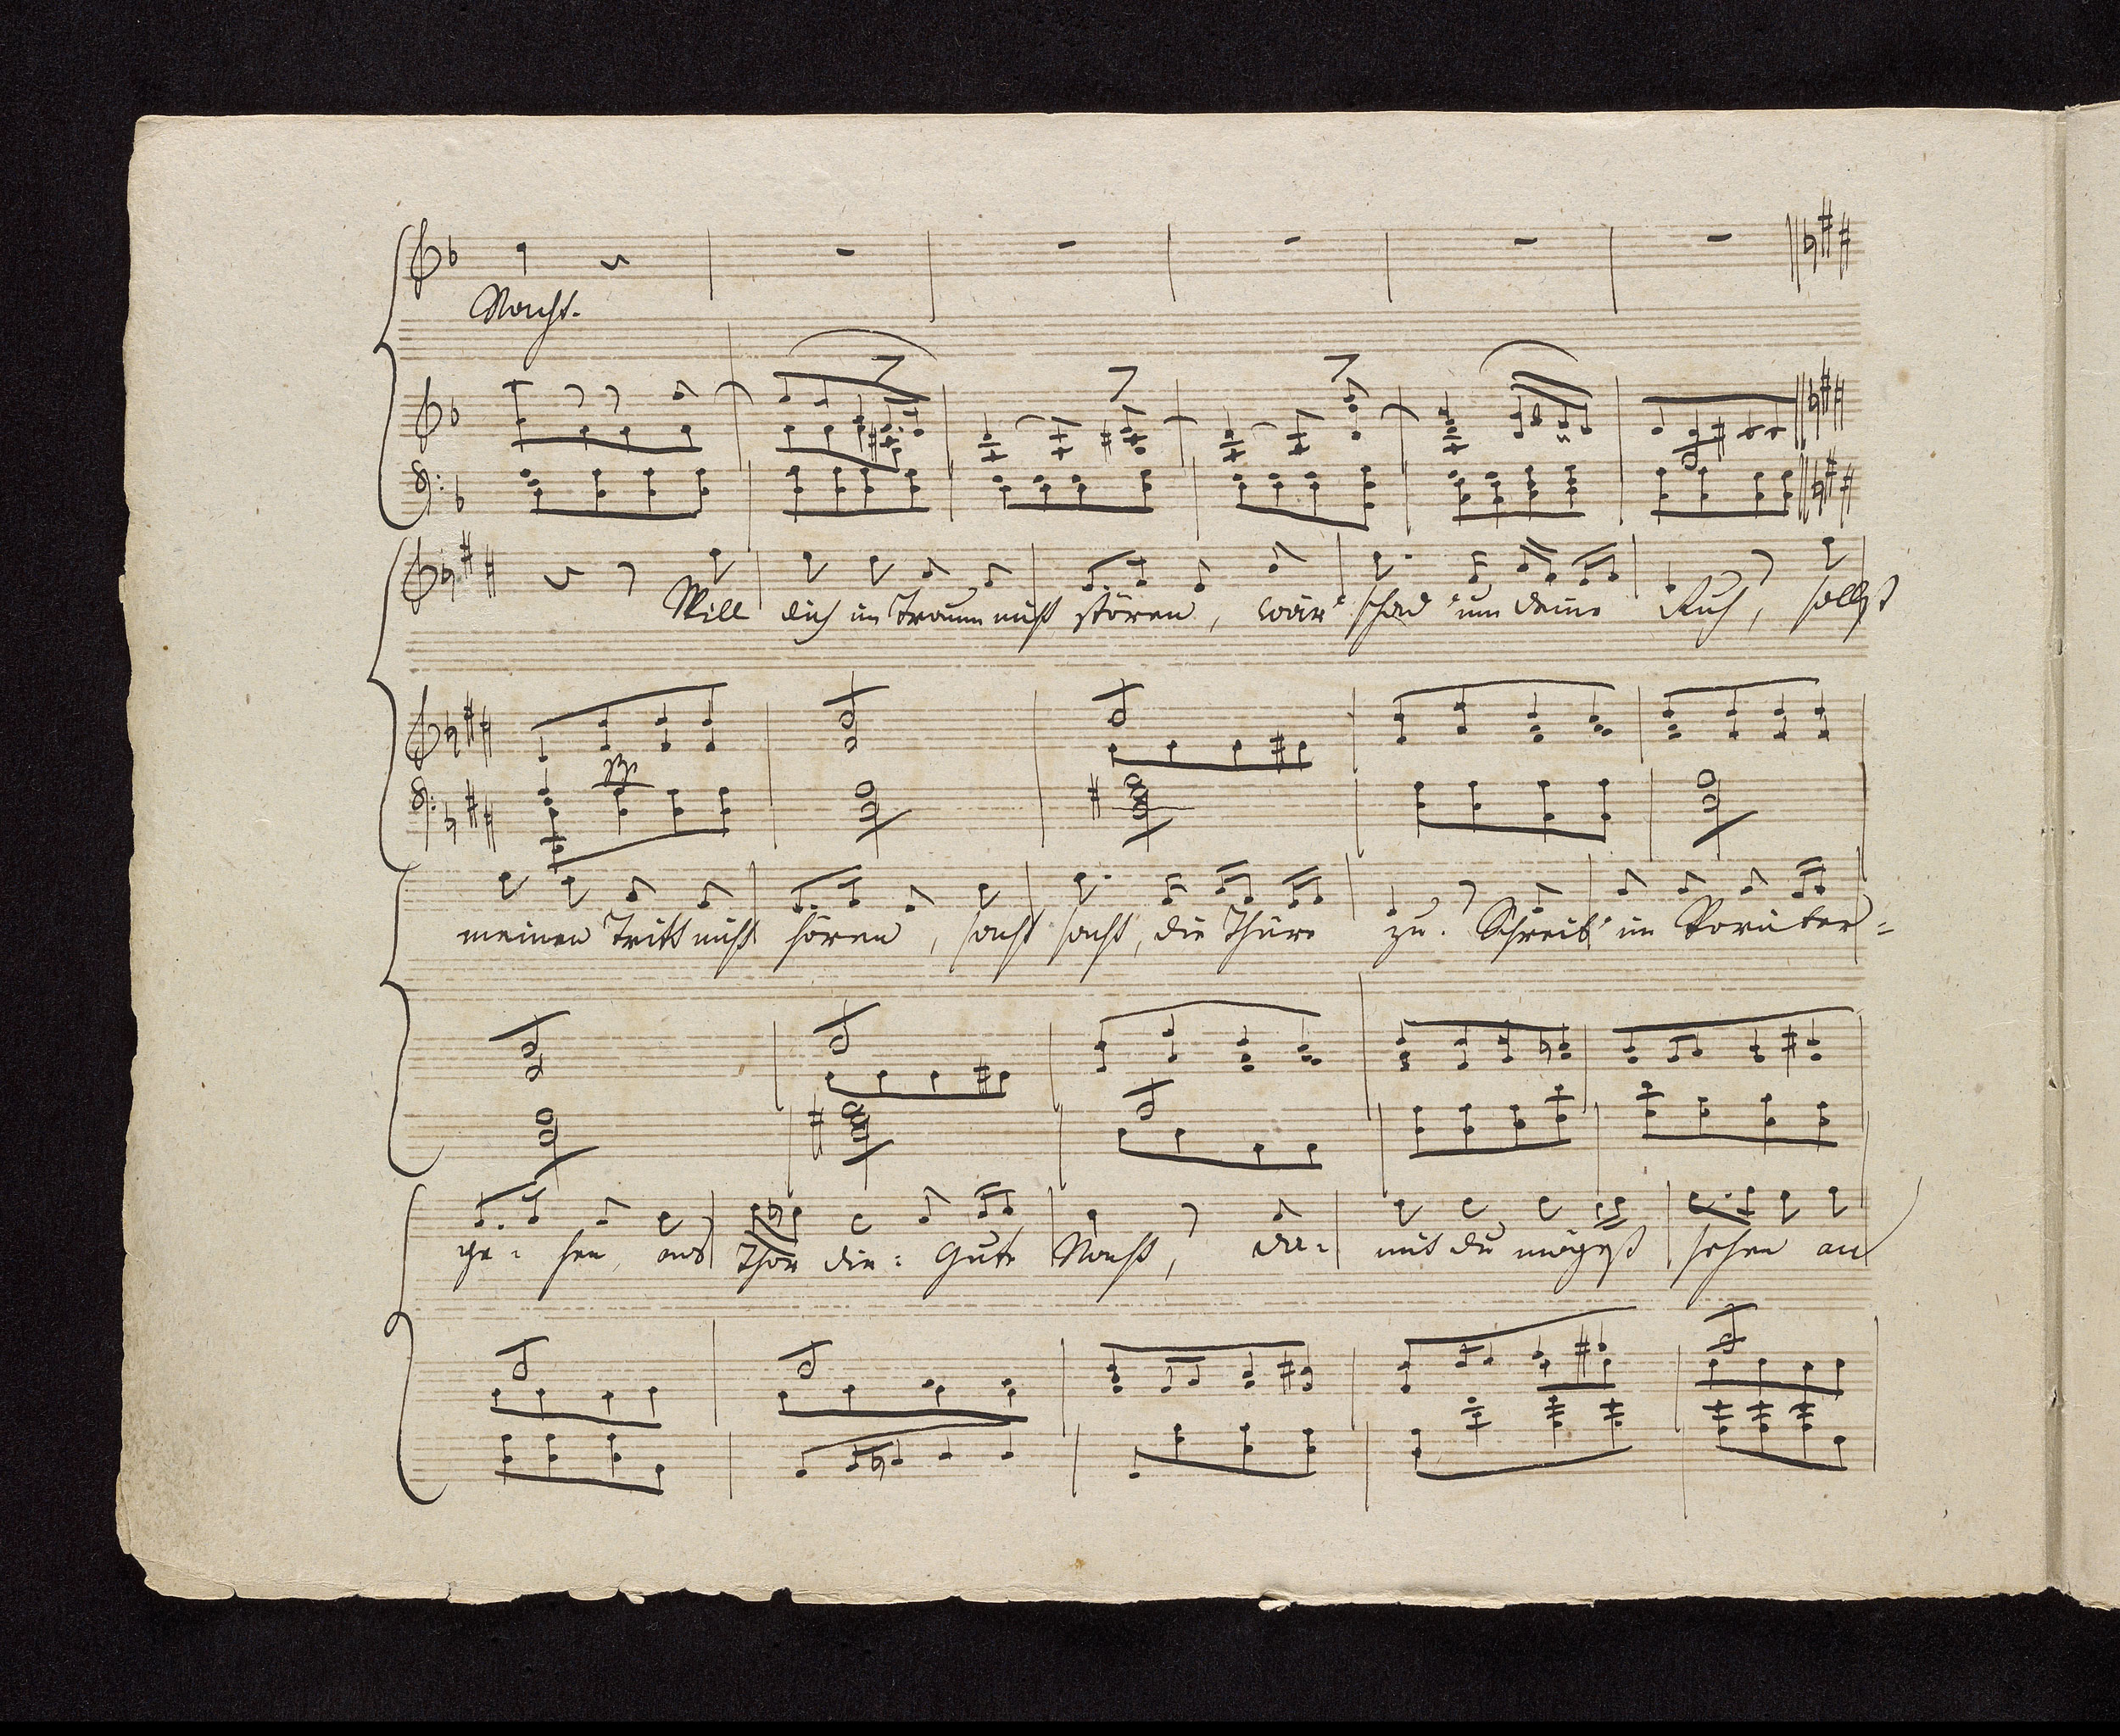 Nacht.
Will dich im Traum nicht stören, wär' schad' um deine Ruh, sollst
pp
meinen Tritt nicht hören, sacht sacht, die Thüre zu. Schreib' im Vorüber=
ge- hen, ans Thor dir: Gute Nacht, da- mit du mögest sehen an